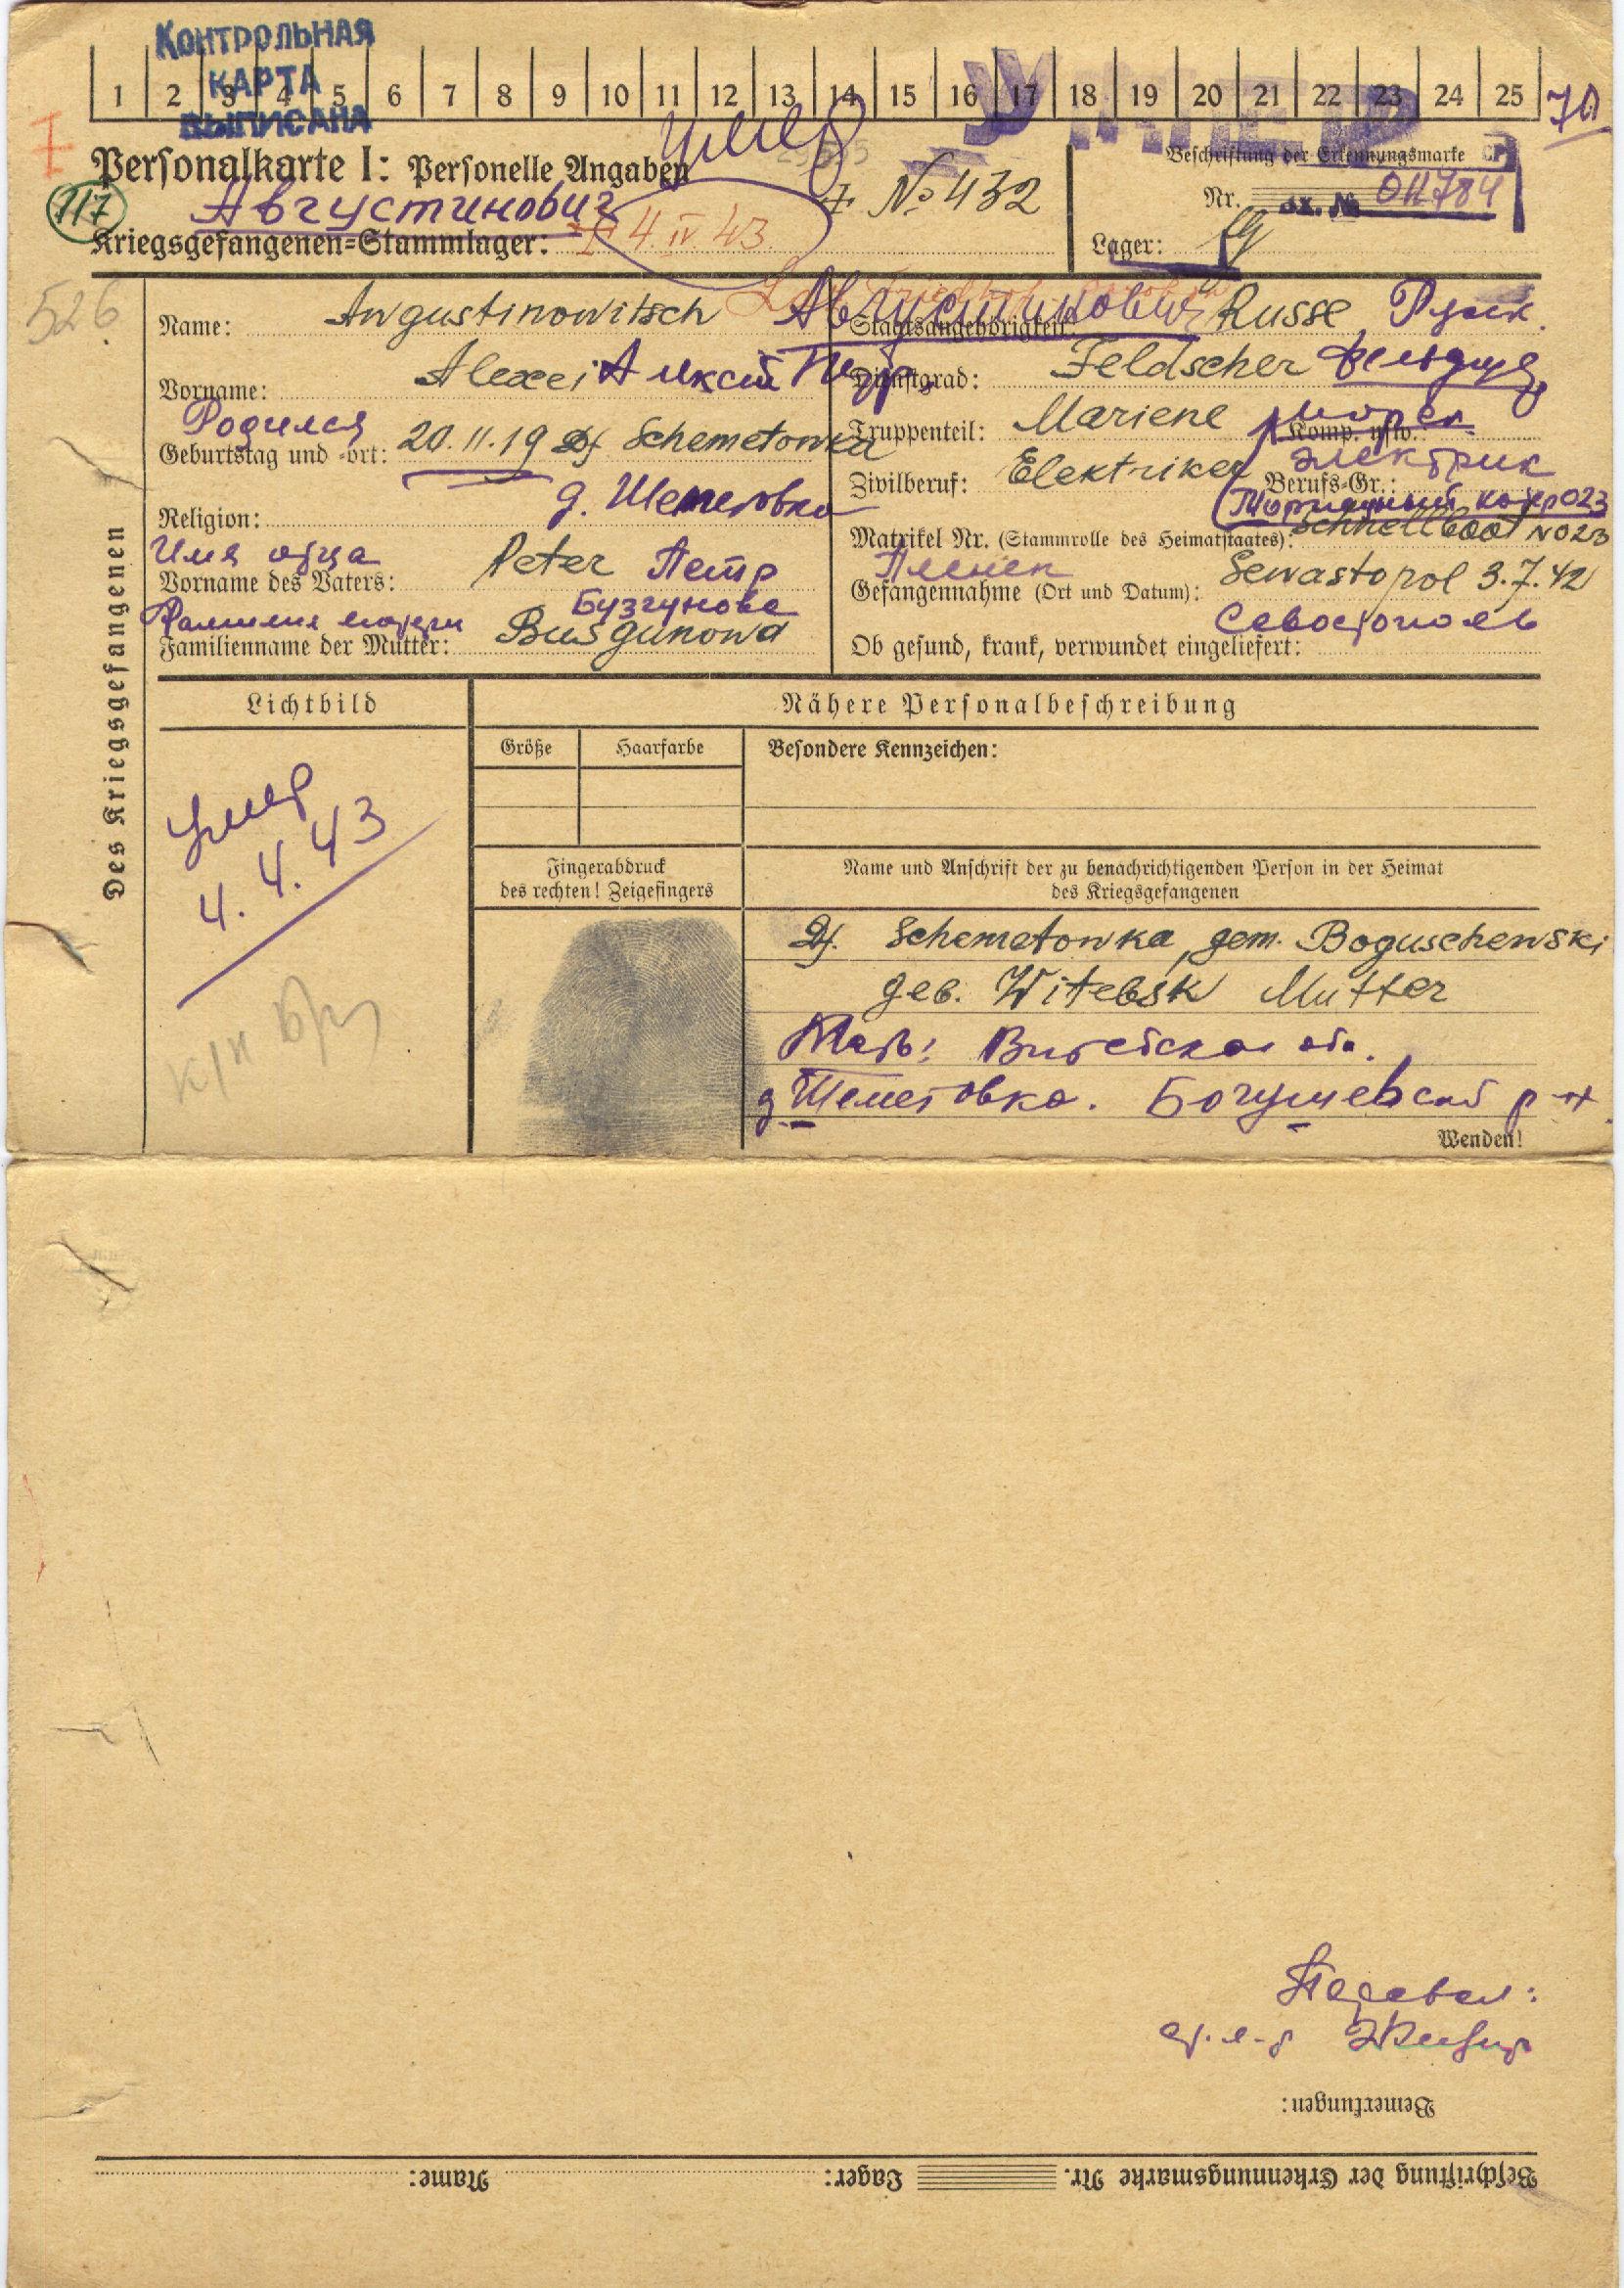 КОНТРОЛЬНАЯ
КАРТА
ВЫПИСАНА
1 2 3 4 5 6 7 8 9 10 11 12 13 14 15 16 17 18 19 20 21 22 23 24 25
УМЕР
умер
Personalkarte I: Personelle Angaben
Beschriftung der Erkennungsmarke
117
Августинович
№ 432
Nr. вх. № 011784
Kriegsgefangenen=Stammlager: 4. IV. 43
Lager:
526
Des Kriegsgefangenen
Name: Awgustinowitsch Августинович
Staatsangehörigkeit: Russe Русск.
Vorname: Alexei Алексей Петр.
Dienstgrad: Feldscher Фельдшер
Родился
Geburtstag und =ort: 20.11.19 Df Schemetowka
д. Шеметовка
Truppenteil: Mariene Komp. usw.:
Zivilberuf: Elektriker Berufs=Gr.:
электрик
Religion:
Matrikel Nr. (Stammrolle des Heimatstaates): Schnellboot No 23
Имя отца
Vorname des Vaters: Peter Петр
Пленен
Gefangennahme (Ort und Datum): Sewastopol 3.7.42
Севастополь
Фамилия матери Бузгунова
Familienname der Mutter: Busgunowa
Ob gesund, krank, verwundet eingeliefert:
Lichtbild
Nähere Personalbeschreibung
Größe
Haarfarbe
Besondere Kennzeichen:
умер
4.4.43
Fingerabdruck
des rechten! Zeigefingers
Name und Anschrift der zu benachrichtigenden Person in der Heimat
des Kriegsgefangenen
Df. Schemetowka, gem. Boguschewski
geb. Witebsk Mutter
Мать: Витебская обл.
д Шеметовка. Богушевский р-н
Wenden!
Bemerkungen:
Beschriftung der Erkennungsmarke Nr. Lager: Name: